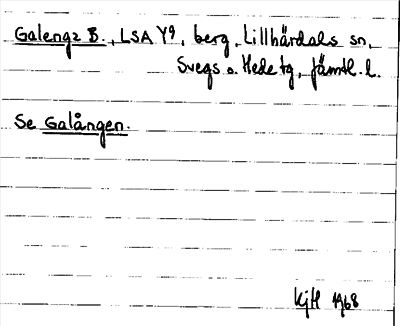 Galengz B., LSA Y9, berg, Lillhärdals sn,
Svegs o. Hede tg, Jämtl. l.
Se Galången.
1968